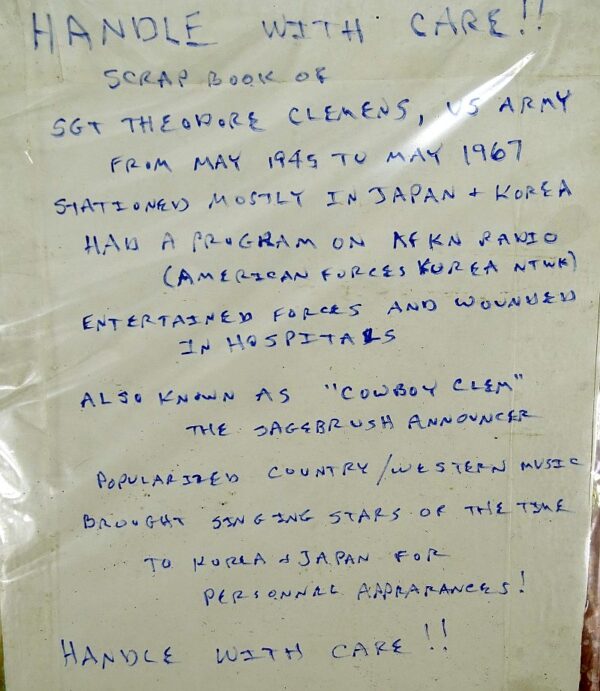 HANDLE WITH CARE!!
SCRAP BOOK OF
SGT THEODORE CLEMENS, US ARMY
FROM MAY 1945 TO MAY 1967
STATIONED MOSTLY IN JAPAN + KOREA
HAD A PROGRAM ON AFKN RADIO
(AMERICAN FORCES KOREA NTWK)
ENTERTAINED FORCES AND WOUNDED
IN HOSPITALS
ALSO KNOWN AS "COWBOY CLEM"
THE SAGEBRUSH ANNOUNCER
POPULARIZED COUNTRY/WESTERN MUSIC
BROUGHT SINGING STARS OF THE TIME
TO KOREA & JAPAN FOR
PERSONNAL APPEARANCES!
HANDLE WITH CARE!!